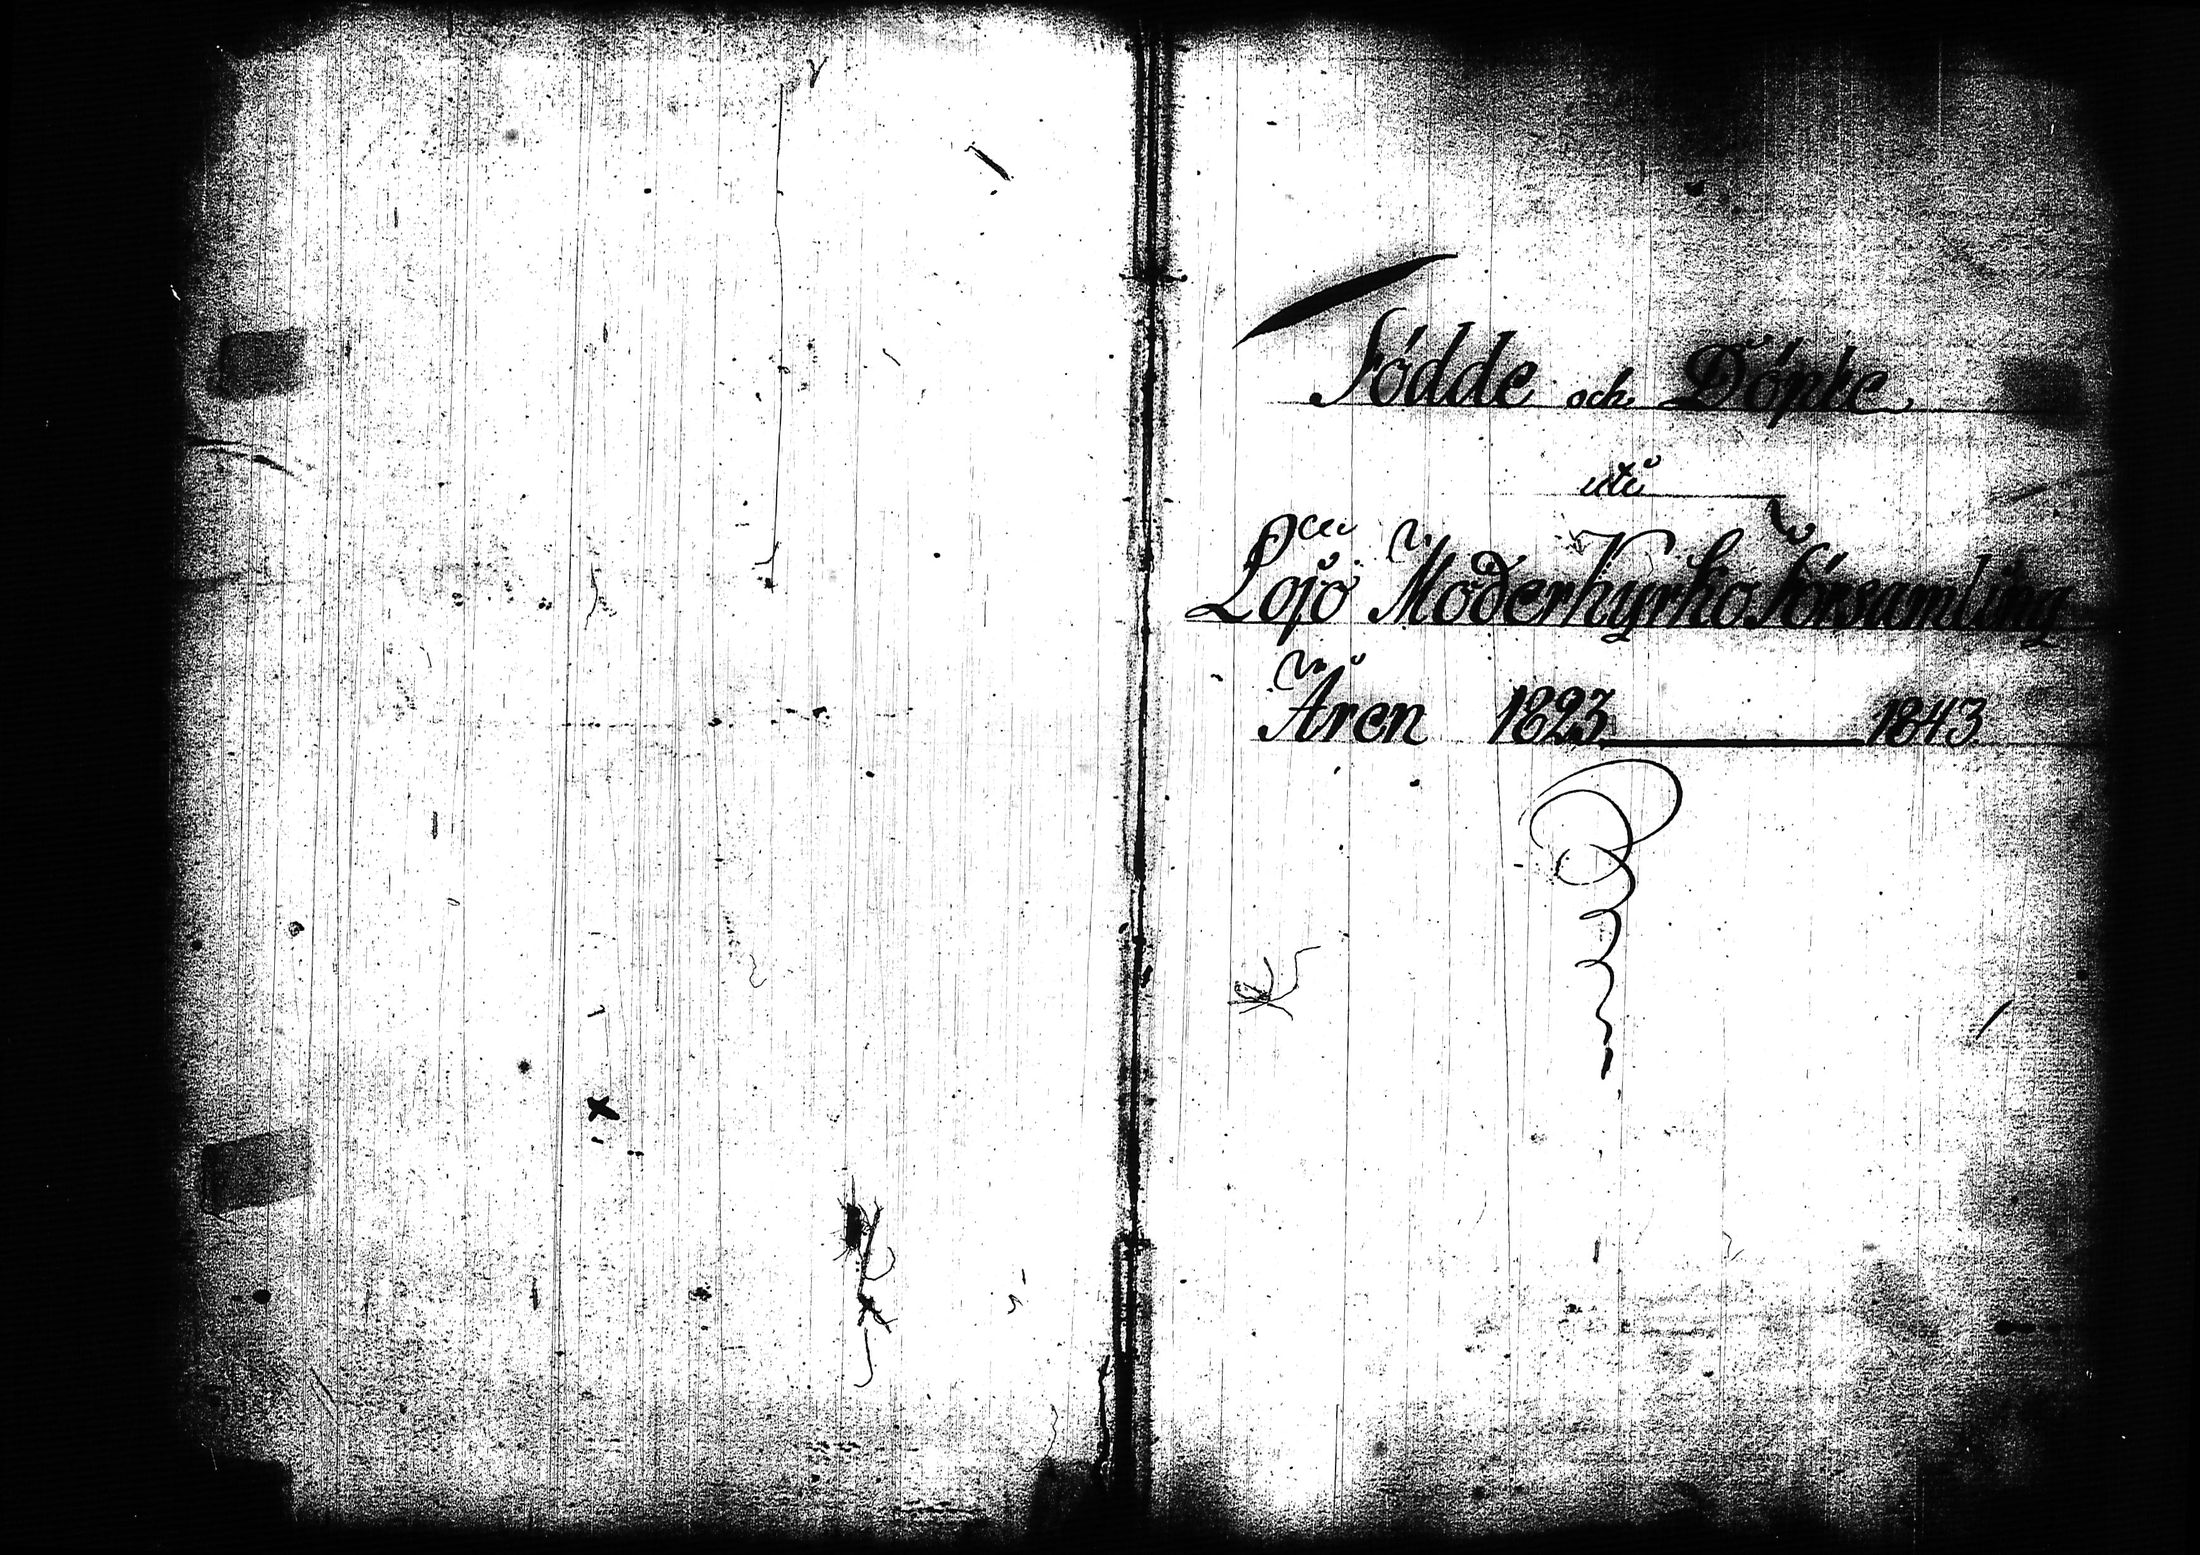 Födde och Döpte
uti
Lojo Moderkyrko församling
Åren 1823 — 1843